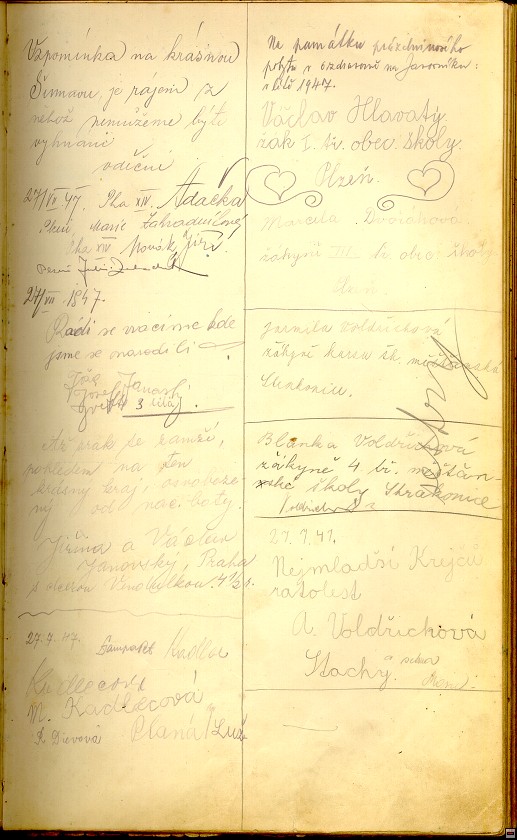 Vzpomínka na krásnou
Šumavu, je rájem z
něhož nemůžeme býti
vyhnáni
vděční
27/VII 47. Pha XIV. Adačka
Marie Zahradníková
Pha XIV Novák Jiří.
27/VII. 1947.
Rádi se vracíme kde
jsme se narodili
Josef Janoch
3 lilá
Až zrak se zamží,
pohledem na ten
krásný kraj, osvoboze-
ný od naci boty.
Jiřina a Václav
Janovský, Praha
s dcerou Vendulkou. 4 1/2 r.
27. 7. 47. Kadlec
Kadlecová
M. Kadlecová
Planá n/Luž
Na památku prázdninového
pobytu v ozdravovně na Javorníku
v létě 1947.
Václav Hlavatý.
žák I. tř. obec. školy.
Plzeň.
Marcela Dvořáková
žákyně III. tř. obec. školy
Plzeň.
Jarmila Voldřichová
žákyně kursu šk. měšťanská
Strakonice.
Blanka Voldřichová
žákyně 4 tř. měšťan-
ské školy Strakonice
27. 7. 47.
Nejmladší Krejčů
ratolest
A. Voldřichová
Stachy.